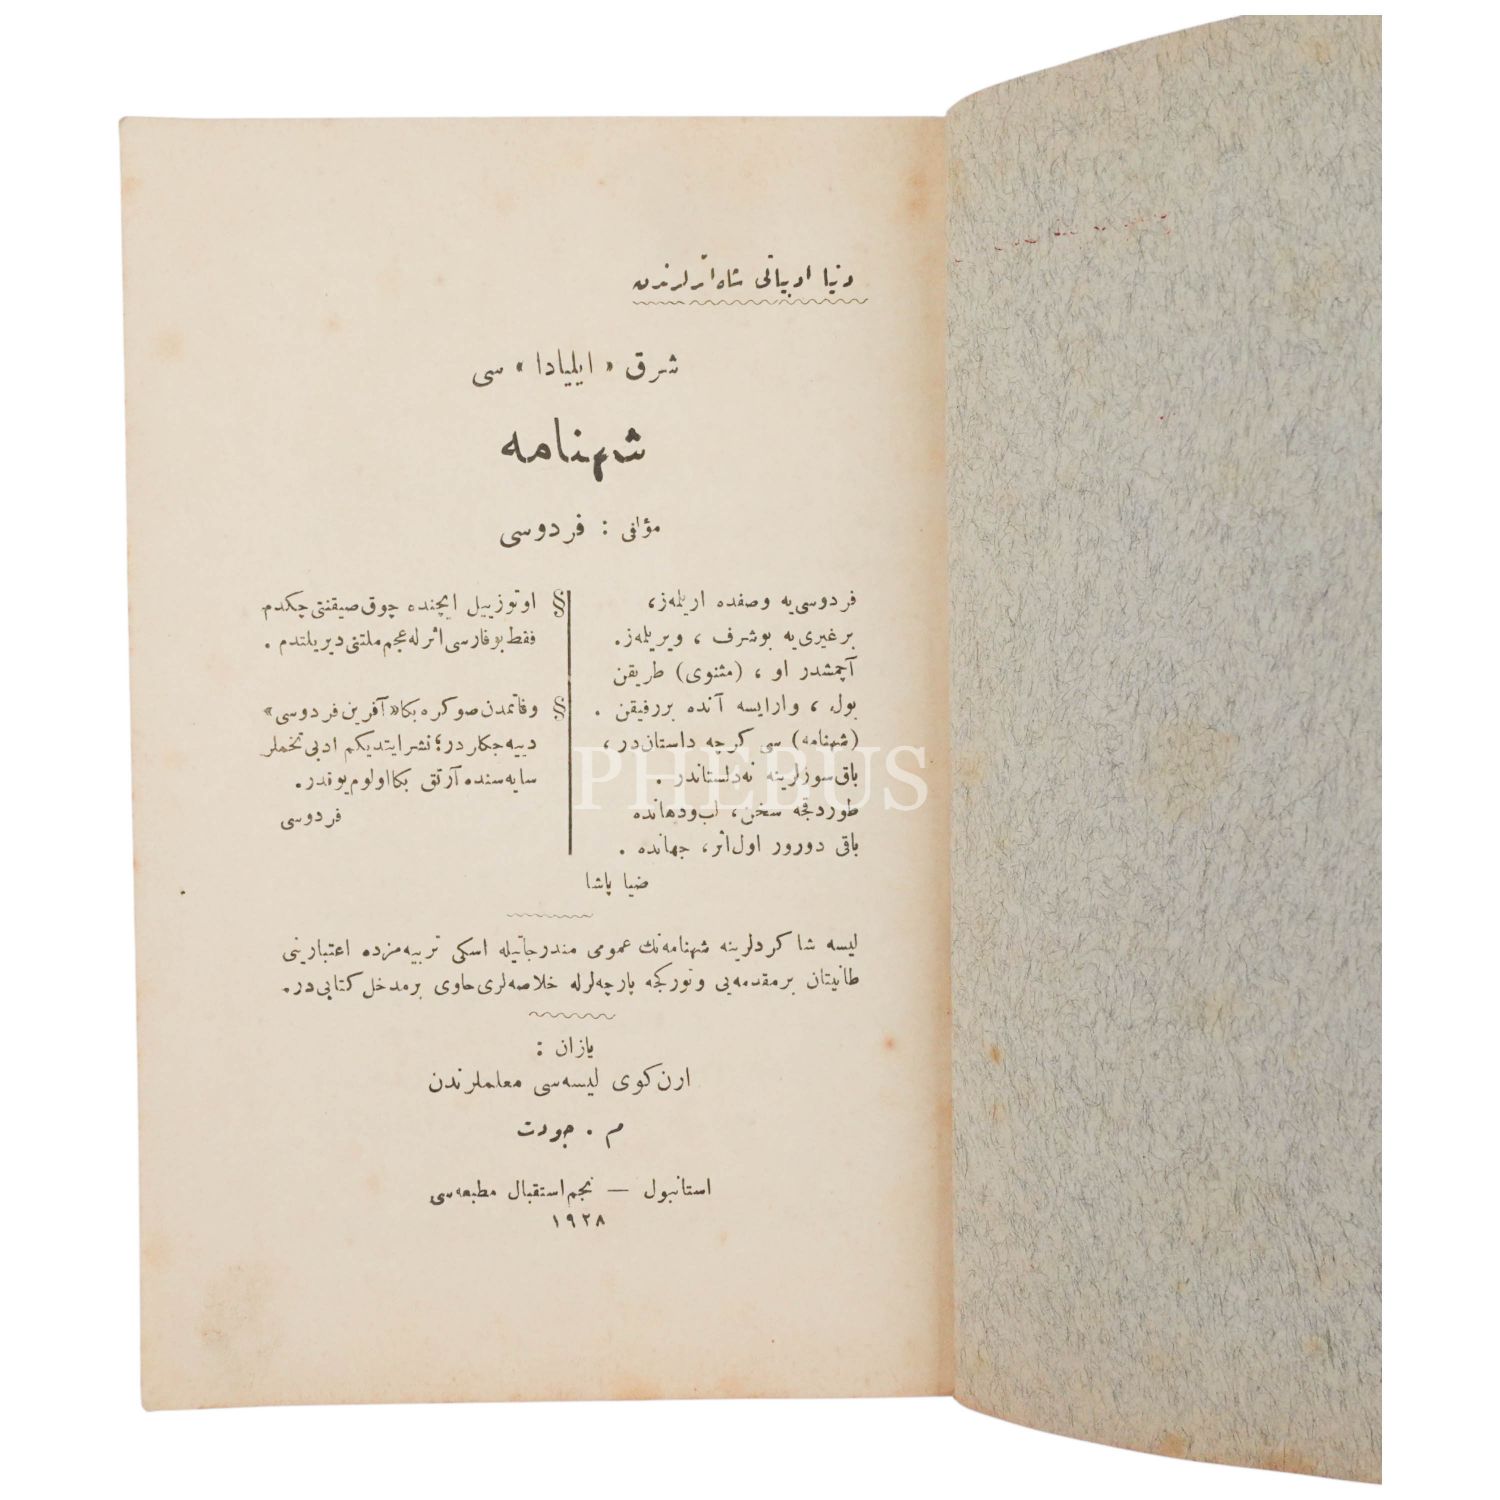 دنیا ادبیاتی شاه اثرلرندن
شرق «ایلیادا» سی
شهنامه
مؤلفی : فردوسی
فردوسی‌یه وصفده اریلمه‌ز،
برغیری‌یه بوشرف ، ویریلمه‌ز.
آچمشدر او ، (مثنوی) طریقن
بول ، وارایسه آنده بررفیقن .
(شهنامه) سی کرچه داستان‌در ،
باق‌سوزلرینه نه‌دلستاندر .
طوردقجه سخن، لب‌ودهانده
باقی دورور اول‌اثر، جهانده .
ضیا پاشا
§ اوتوزییل ایچنده چوق‌صیقنتی چکدم
فقط‌بوفارسی اثرله‌عجم‌ملتنی‌دیریلتدم .
§ وفاتمدن‌صوکره‌بکا«آفرین‌فردوسی»
دییه‌جکلردر؛نشرایتدیکم ادبی‌تخملر
سایه‌سنده آرتق بکااولوم‌یوقدر.
فردوسی
لیسه شاکردلرینه شهنامه‌نك عمومی مندرجاتیله اسکی تربیه‌مزده اعتبارینی
طانیتان برمقدمه‌یی وتورکجه پارچه‌لرله خلاصه‌لری‌حاوی برمدخل‌کتابی‌در.
یازان :
ارن‌کوی لیسه‌سی معلملرندن
م . جودت
استانبول — نجم‌استقبال مطبعه‌سی
۱۹۲۸
PHEBUS